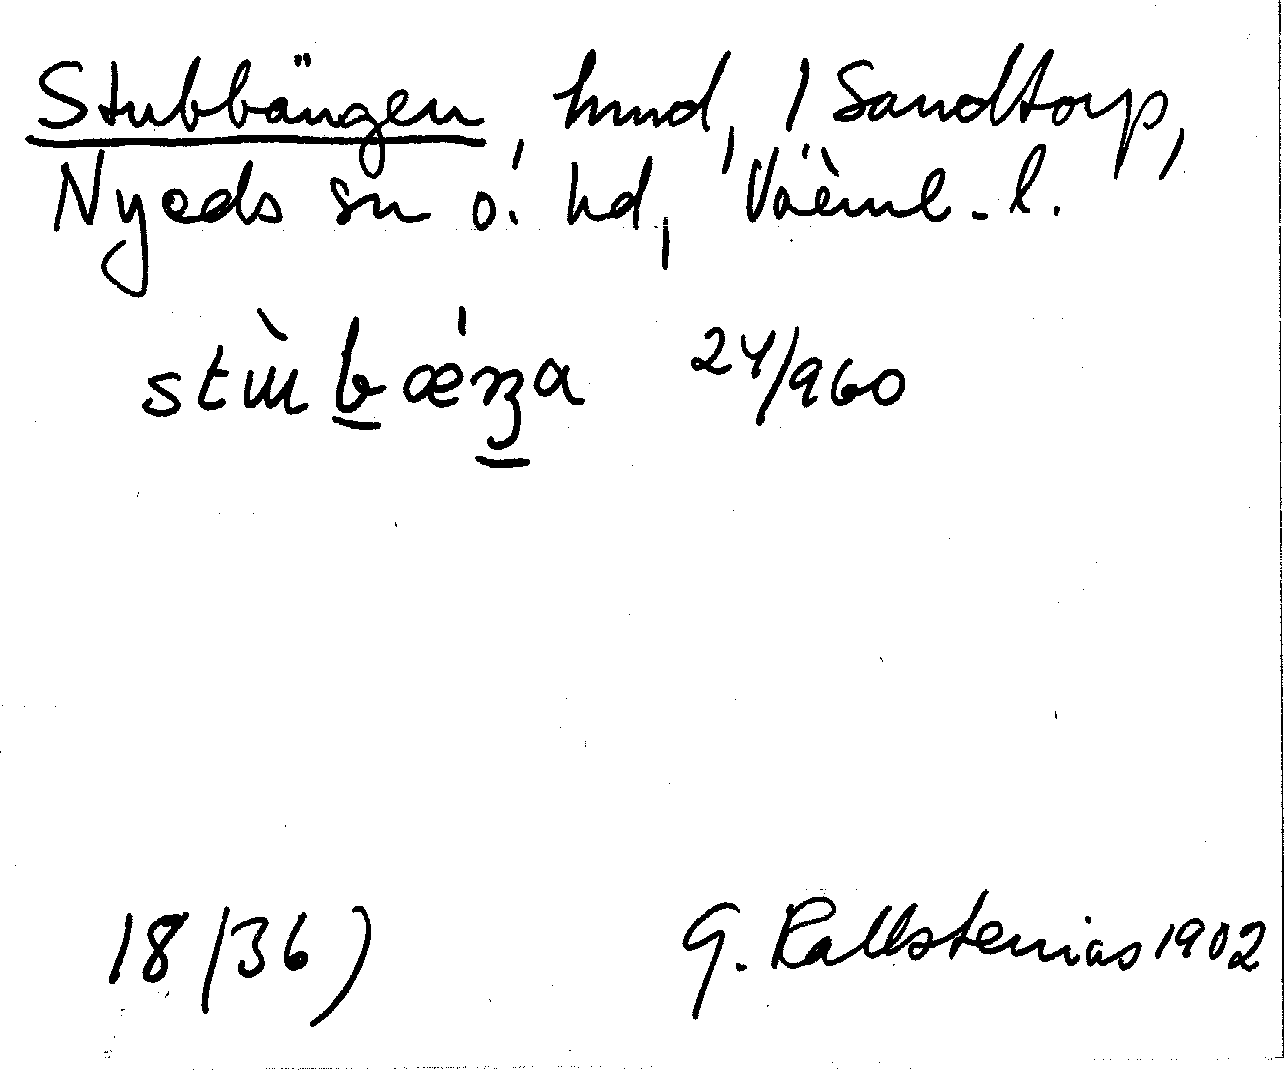 Stubbängen, hmd, / Sandtorp,
Nyeds sn o. hd, Värml. l.
stùbǽŋa 24/960
18/36) G. Kallstenius 1902